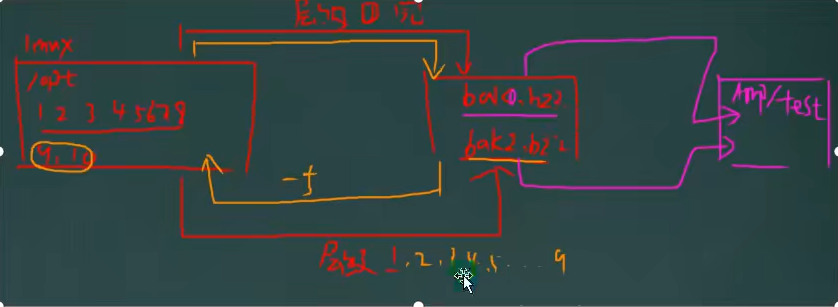 层级 0 完
linux
/opt
1 2 3 4 5 6 7 8
9, 10
bak0.bz2
bak2.bz2
/tmp/test
-f
层级 1, 2, 3, 4, 5 .... 9